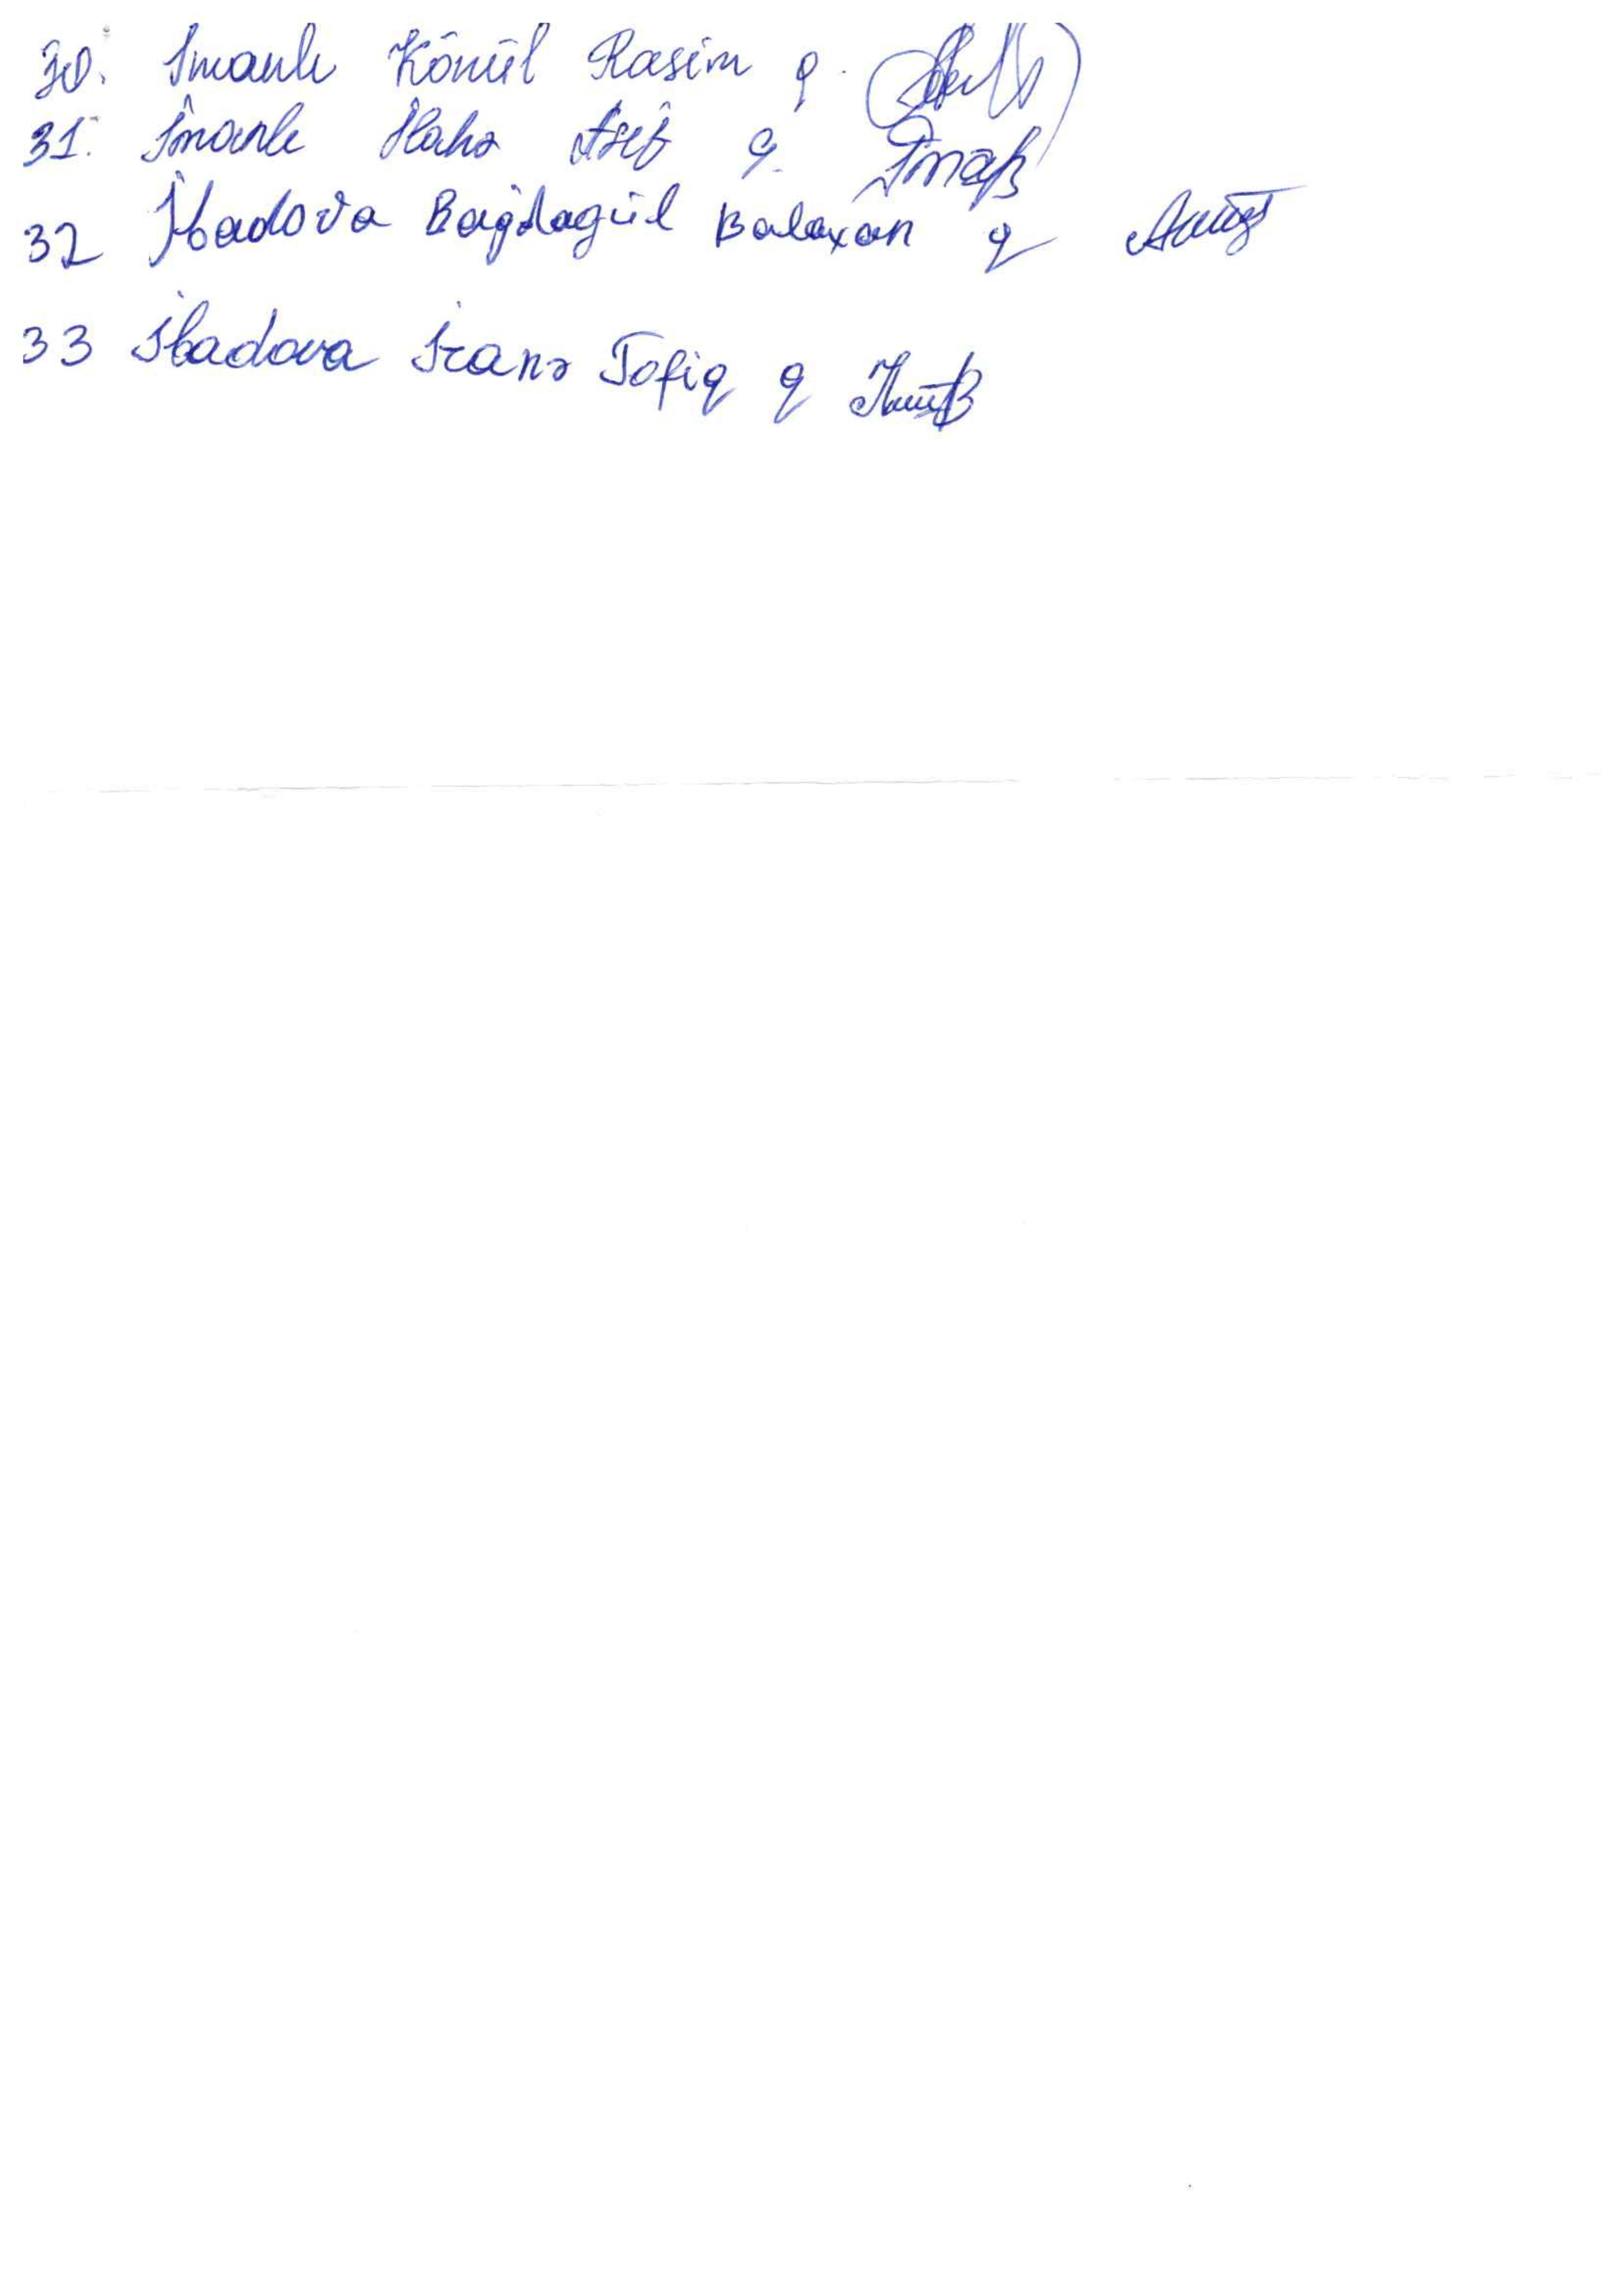 30. İmanlı Könül Rasim q.
31. İmanlı Asif q.
32 İbadova Bağdagül Balaxan q
33 İbadova İranə Tofiq q